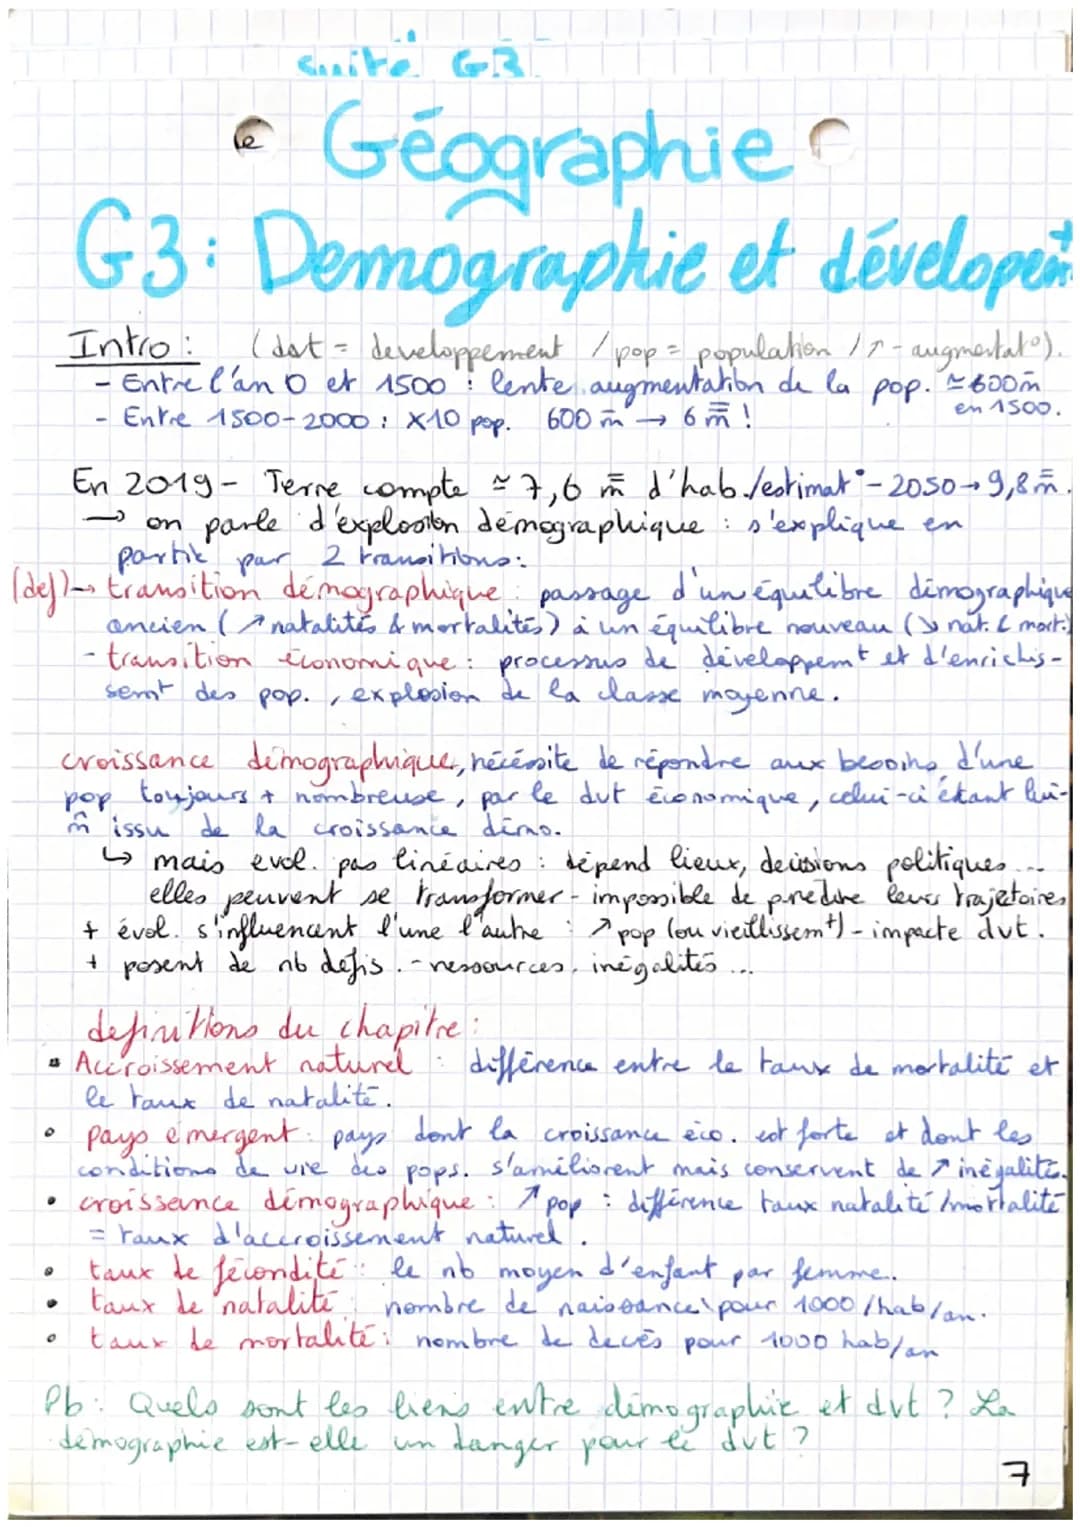 suite G3
le Géographie
G3: Demographie et dévelopemt
Intro : (dvt = developpement / pop = population / ↗ - augmentat°).
- Entre l'an 0 et 1500 : lente augmentation de la pop. ≃ 600 m̄
en 1500.
- Entre 1500-2000 : x10 pop. 600 m̄ → 6 m̿ !
En 2019 - Terre compte ≃ 7,6 m̿ d'hab./estimat° - 2050 → 9,8 m̿.
→ on parle d'explosion démographique : s'explique en
partie par 2 transitions :
(def) → transition démographique : passage d'un équilibre démographique
ancien (↗ natalités & mortalités) à un équilibre nouveau (↘ nat. & mort.)
- transition économique : processus de développemt et d'enrichis-
semt des pop., explosion de la classe moyenne.
croissance démographique, nécéssite de répondre aux besoins d'une
pop toujours + nombreuse, par le dvt économique, celui-ci étant lui-
m̂ issu de la croissance démo.
↳ mais evol. pas linéaires : dépend lieux, decisions politiques...
elles peuvent se transformer - impossible de predire leurs trajetoires
+ évol. s'influencent l'une l'autre : ↗ pop (ou vieillissemt) - impacte dvt.
+ posent de nb défis. - ressources, inégalités ...
definitions du chapitre :
Accroissement naturel : différence entre le taux de mortalité et
le taux de natalité.
• pays émergent : pays dont la croissance éco. est forte et dont les
conditions de vie des pops. s'améliorent mais conservent de ↗ inégalités.
• croissance démographique : ↗ pop : différence taux natalité / mortalité
= taux d'accroissement naturel.
• taux de fécondité : le nb moyen d'enfant par femme.
• taux de natalité : nombre de naissance pour 1000 / hab/an.
• taux de mortalité : nombre de decès pour 1000 hab/an
Pb : Quels sont les liens entre démographie et dvt ? La
démographie est-elle un danger pour le dvt ?
7